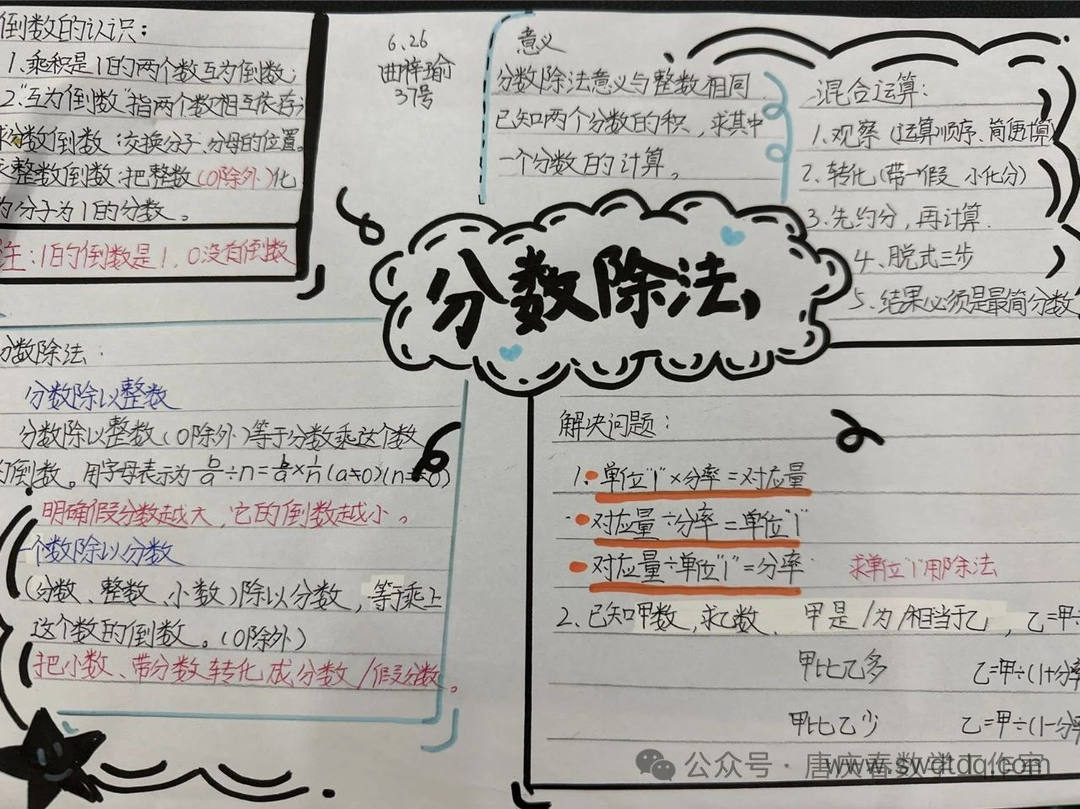 倒数的认识：
1.乘积是1的两个数互为倒数；
2."互为倒数"指两个数相互依存；
求分数倒数：交换分子、分母的位置。
求整数倒数：把整数(0除外)化
为分子为1的分数。
注：1的倒数是1.0没有倒数
6.26
曲梓瑜
37号
意义
分数除法意义与整数相同
已知两个分数的积，求其中
一个分数的计算。
混合运算：
1.观察(运算顺序、简便算)
2、转化(带→假 小化分)
3.先约分，再计算.
4、脱式三步
5、结果必须是最简分数
分数除法
分数除法：
分数除以整数
分数除以整数(0除外)等于分数乘这个数
的倒数。用字母表示为b/a÷n=b/a×1/n(a≠0)(n≠0)
明确假分数越大，它的倒数越小。
一个数除以分数
(分数、整数、小数)除以分数，等于乘上
这个数的倒数。(0除外)
把小数、带分数转化成分数/假分数。
解决问题：
1.单位"1"×分率=对应量
对应量÷分率=单位"1"
对应量÷单位"1"=分率 求单位"1"用除法
2、已知甲数，求乙数、甲是/为/相当于乙，乙=甲÷
甲比乙多 乙=甲÷(1+分率
甲比乙少 乙=甲÷(1-分率
公众号·唐庆春数学工作室
www.swdtdq.com